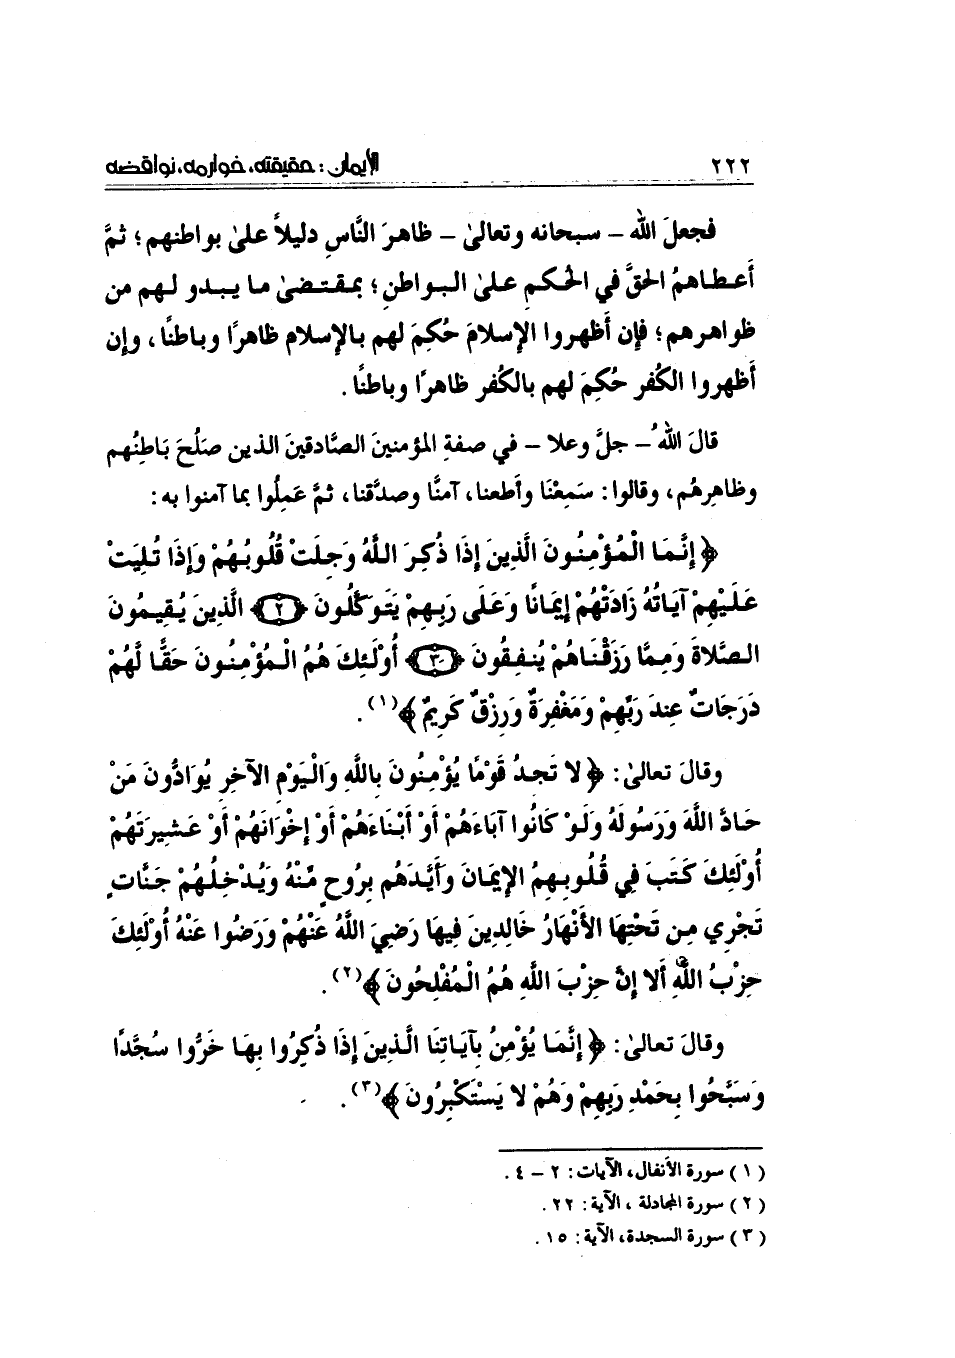 ٢٢٢
الإيمان : حقيقته، خوارمه، نواقضه
فجعلَ الله – سبحانه وتعالىٰ – ظاهرَ النَّاسِ دليلاً علىٰ بواطنهم ؛ ثمَّ
أَعطاهمُ الحقَّ في الحُكمِ علىٰ البواطنِ ؛ بمقتضىٰ ما يبدو لهم من
ظواهرهم ؛ فإن أَظهروا الإسلامَ حُكِمَ لهم بالإسلام ظاهرًا وباطنًا ، وإن
أَظهروا الكُفر حُكِمَ لهم بالكُفر ظاهرًا وباطنًا .
قالَ اللهُ – جلَّ وعلا – في صفةِ المؤمنينَ الصَّادقينَ الذين صلُحَ بَاطنُهم
وظاهِرهُم ، وقالوا : سَمِعْنَا وأَطعنا ، آمنَّا وصدَّقنا ، ثمَّ عَمِلُوا بما آمنوا به :
﴿ إِنَّمَا الْمُؤْمِنُونَ الَّذِينَ إِذَا ذُكِرَ اللَّهُ وَجِلَتْ قُلُوبُهُمْ وَإِذَا تُلِيَتْ
عَلَيْهِمْ آيَاتُهُ زَادَتْهُمْ إِيمَانًا وَعَلَى رَبِهِمْ يَتَوَكَّلُونَ ﴿٢﴾ الَّذِينَ يُقِيمُونَ
الصَّلاةَ وَمِمَّا رَزَقْنَاهُمْ يُنفِقُونَ ﴿٣﴾ أُوْلَئِكَ هُمُ الْمُؤْمِنُونَ حَقًّا لَّهُمْ
دَرَجَاتٌ عِندَ رَبِّهِمْ وَمَغْفِرَةٌ وَرِزْقٌ كَرِيمٌ ﴾(١) .
وقالَ تعالىٰ : ﴿ لا تَجِدُ قَوْمًا يُؤْمِنُونَ بِاللَّهِ وَالْيَوْمِ الآخِرِ يُوَادُّونَ مَنْ
حَادَّ اللَّهَ وَرَسُولَهُ وَلَوْ كَانُوا آبَاءَهُمْ أَوْ أَبْنَاءَهُمْ أَوْ إِخْوَانَهُمْ أَوْ عَشِيرَتَهُمْ
أُوْلَئِكَ كَتَبَ فِي قُلُوبِهِمُ الإِيمَانَ وَأَيَّدَهُم بِرُوحٍ مِّنْهُ وَيُدْخِلُهُمْ جَنَّاتٍ
تَجْرِي مِن تَحْتِهَا الأَنْهَارُ خَالِدِينَ فِيهَا رَضِيَ اللَّهُ عَنْهُمْ وَرَضُوا عَنْهُ أُوْلَئِكَ
حِزْبُ اللَّهِ أَلا إِنَّ حِزْبَ اللَّهِ هُمُ الْمُفْلِحُونَ ﴾(٢) .
وقالَ تعالىٰ : ﴿ إِنَّمَا يُؤْمِنُ بِآيَاتِنَا الَّذِينَ إِذَا ذُكِرُوا بِهَا خَرُّوا سُجَّدًا
وَسَبَّحُوا بِحَمْدِ رَبِهِمْ وَهُمْ لا يَسْتَكْبِرُونَ ﴾(٣) .
(١) سورة الأنفال، الآيات : ٢ – ٤ .
(٢) سورة المجادلة ، الآية : ٢٢ .
(٣) سورة السجدة، الآية : ١٥ .